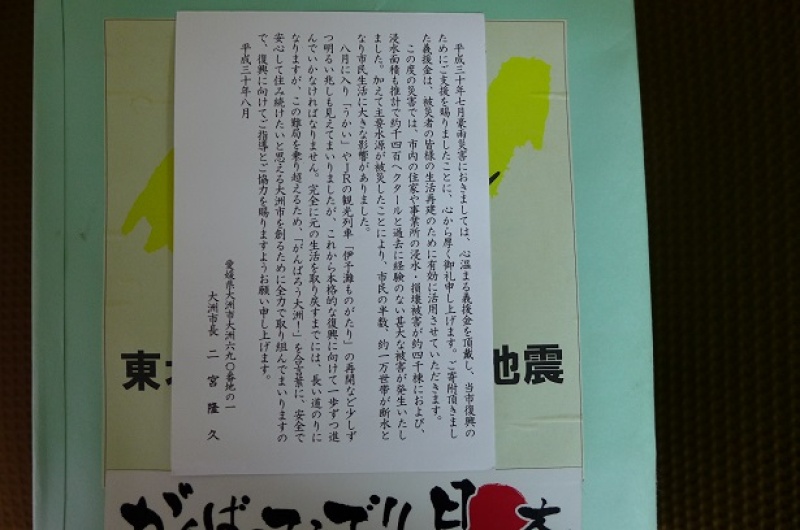 平成三十年七月豪雨災害におきましては、心温まる義援金を頂戴し、当市復興の
ためにご支援を賜りましたことに、心から厚く御礼申し上げます。ご寄附頂きまし
た義援金は、被災者の皆様の生活再建のために有効に活用させていただきます。
この度の災害では、市内の住家や事業所の浸水・損壊被害が約四千棟におよび、
浸水面積も推計で約千四百ヘクタールと過去に経験のない甚大な被害が発生いたし
ました。加えて主要水源が被災したことにより、市民の半数、約一万世帯が断水と
なり市民生活に大きな影響がありました。
八月に入り「うかい」やJRの観光列車「伊予灘ものがたり」の再開など少しず
つ明るい兆しも見えてまいりましたが、これから本格的な復興に向けて一歩ずつ進
んでいかなければなりません。完全に元の生活を取り戻すまでには、長い道のりに
なりますが、この難局を乗り越えるため、「がんばろう大洲!」を合言葉に、安全で
安心して住み続けたいと思える大洲市を創るために全力で取り組んでまいりますの
で、復興に向けてご指導とご協力を賜りますようお願い申し上げます。
平成三十年八月
愛媛県大洲市大洲六九〇番地の一
大洲市長 二宮隆久
東 地震
がんばってっぺ 日本